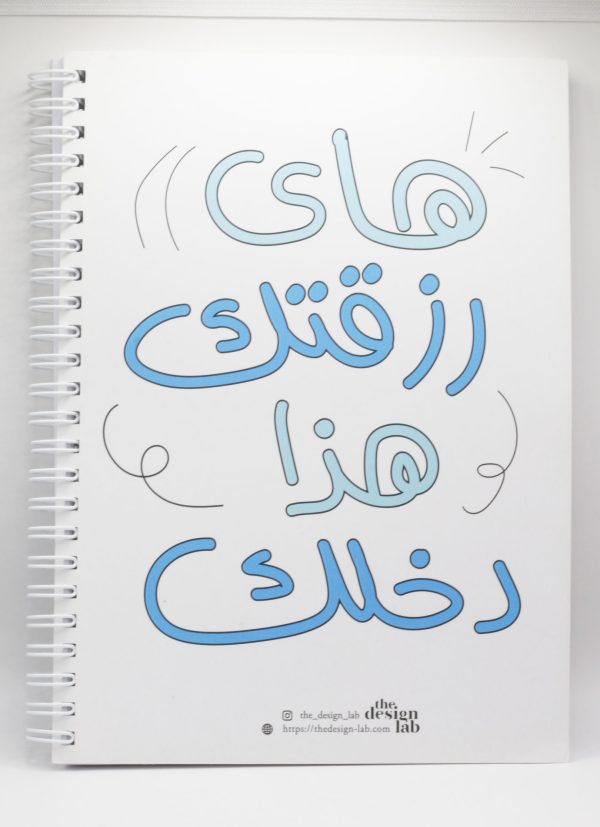 هاى
رزقتك
هذا
دخلك
the_design_lab
https://thedesign-lab.com
the
design
lab